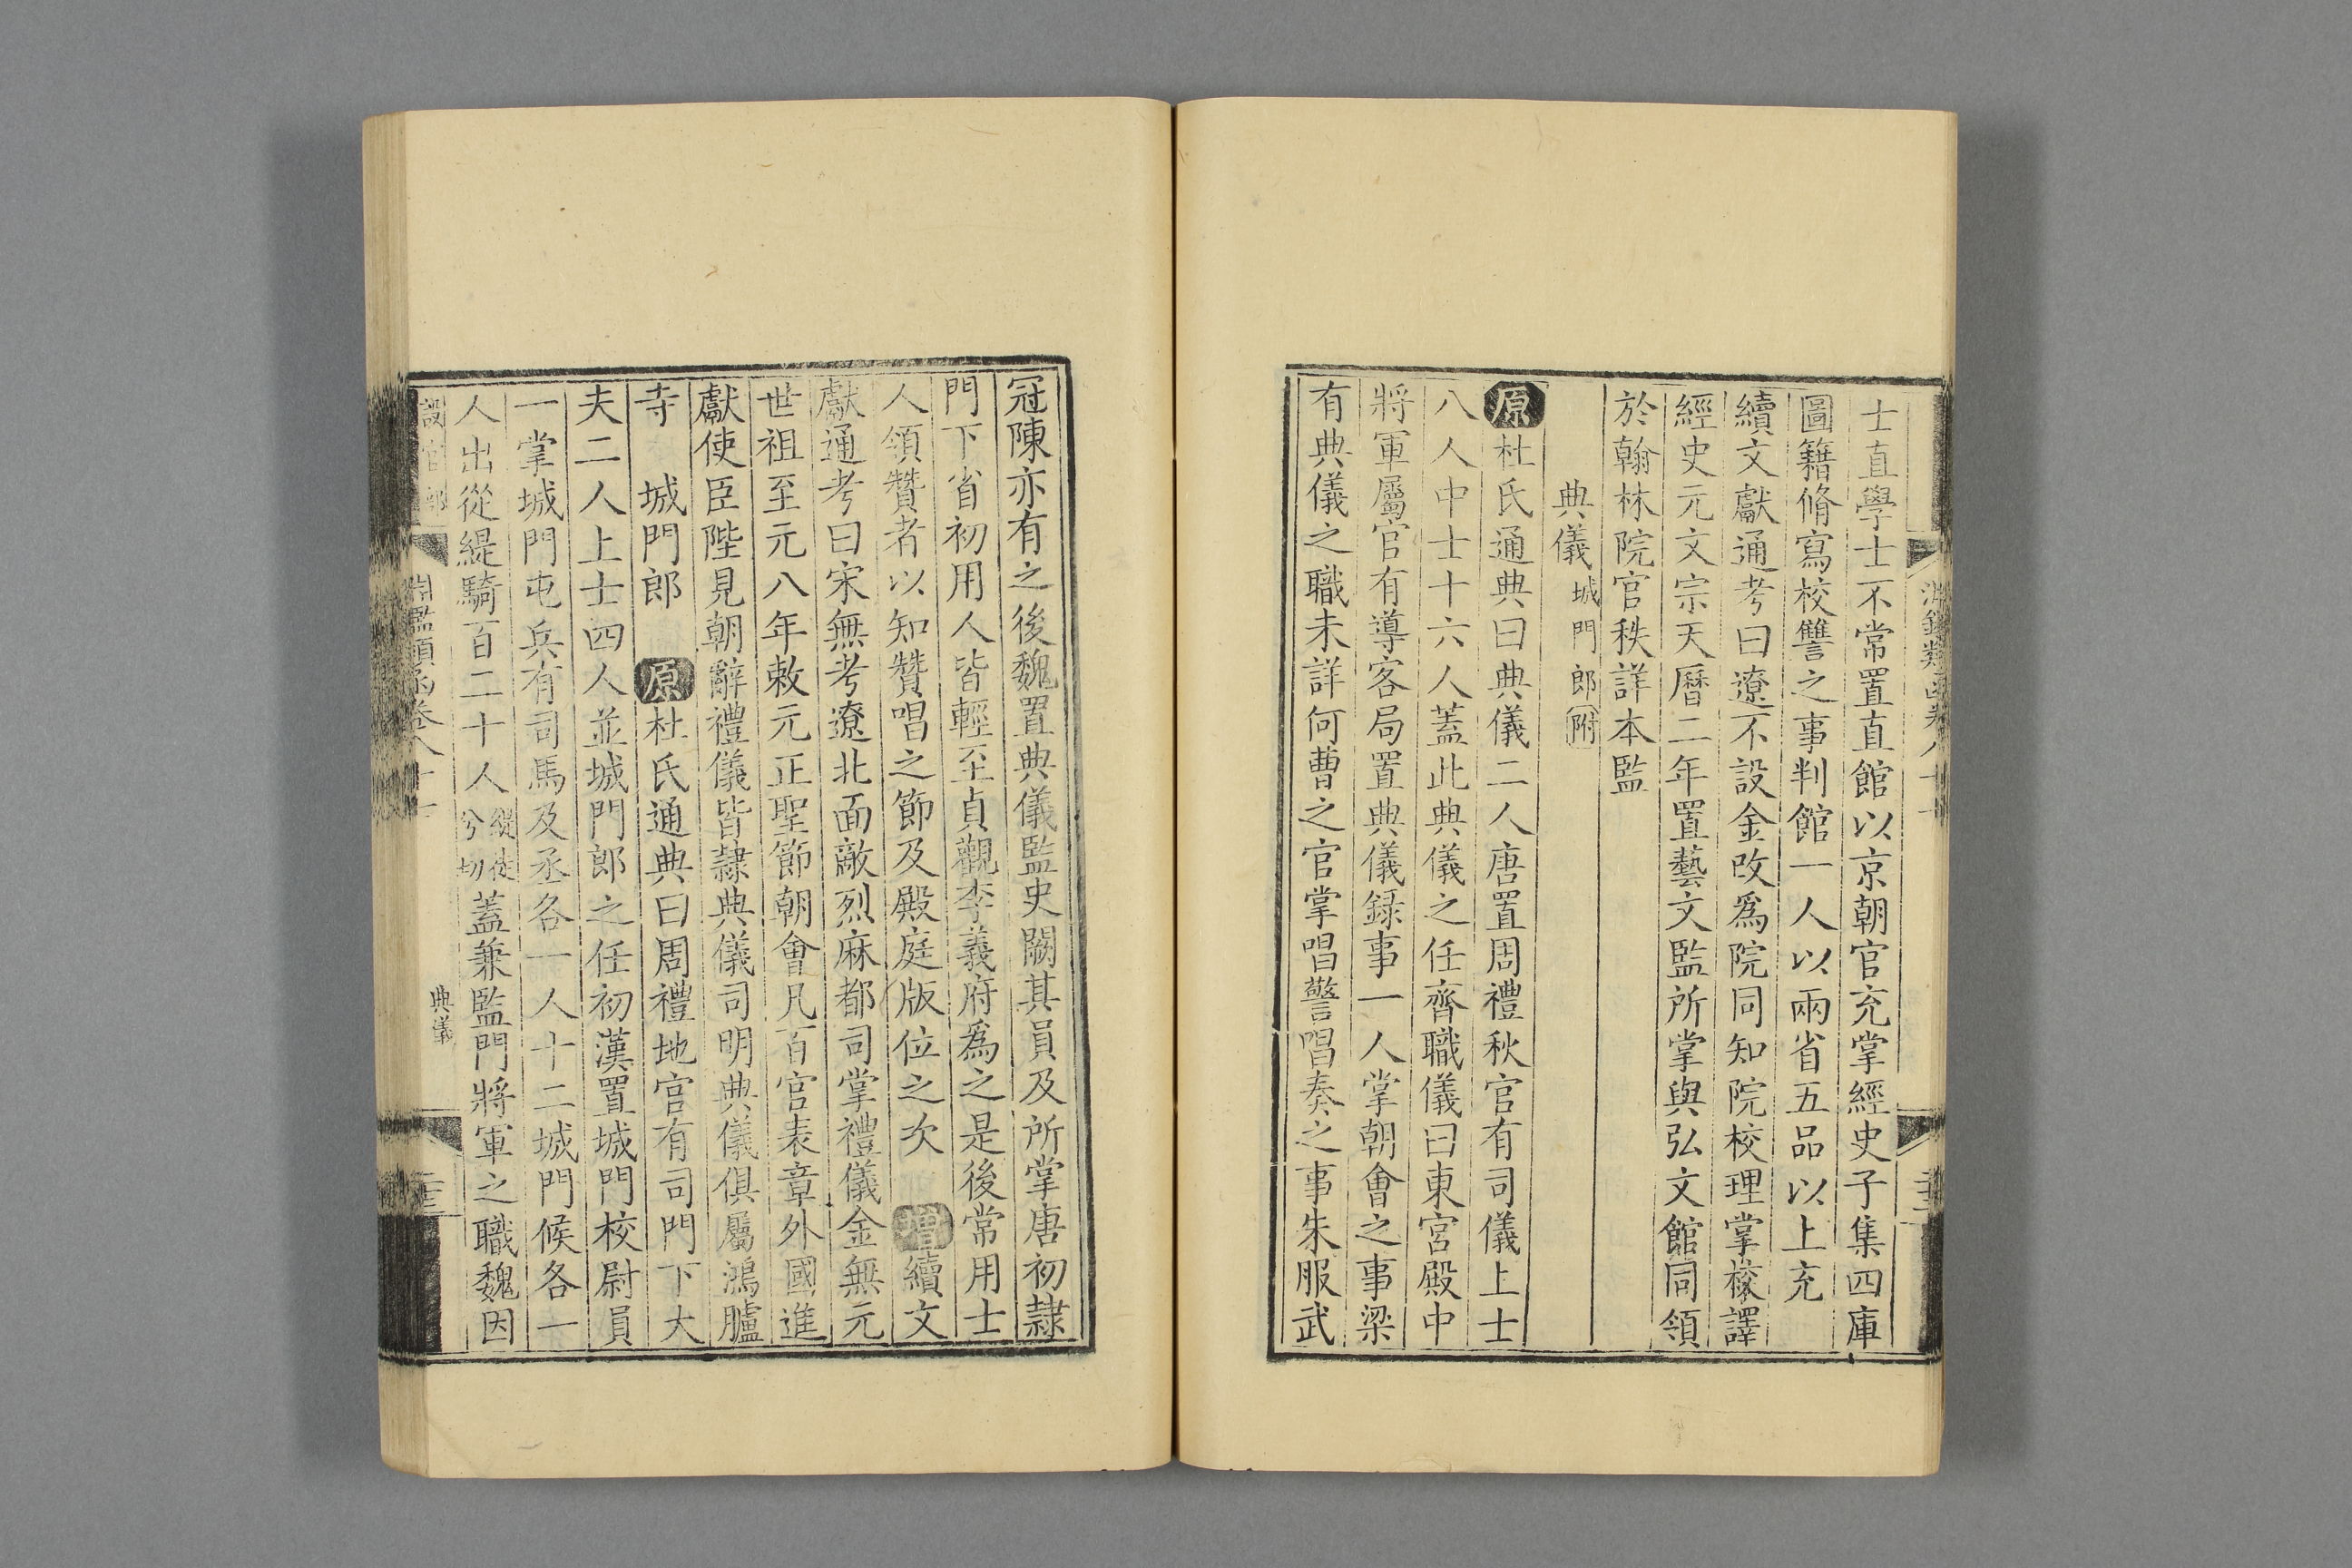 士直學士不常置直館以京朝官充掌經史子集四庫
圖籍脩寫校讐之事判館一人以兩省五品以上充
續文獻通考曰遼不設金改爲院同知院校理掌㮣譯
經史元文宗天曆二年置藝文監所掌與弘文館同領
於翰林院官秩詳本監
典儀 城門郎附
原杜氏通典曰典儀二人唐置周禮秋官有司儀上士
八人中士十六人蓋此典儀之任齊職儀曰東宮殿中
將軍屬官有導客局置典儀録事一人掌朝會之事梁
有典儀之職未詳何曹之官掌唱警唱奏之事朱服武
冠陳亦有之後魏置典儀監史闕其員及所掌唐初隷
門下省初用人皆輕至貞觀李義府爲之是後常用士
人領贊者以知贊唱之節及殿庭版位之次 增續文
獻通考曰宋無考遼北面敵烈麻都司掌禮儀金無元
世祖至元八年敕元正聖節朝會凡百官表章外國進
獻使臣陛見朝辭禮儀皆隷典儀司明典儀俱屬鴻臚
寺 城門郎 原杜氏通典曰周禮地官有司門下大
夫二人上士四人並城門郎之任初漢置城門校尉員
一掌城門屯兵有司馬及丞各一人十二城門候各一
人出從緹騎百二十人 緹徒兮切 蓋兼監門將軍之職魏因
淵鑑類函卷八十
典儀